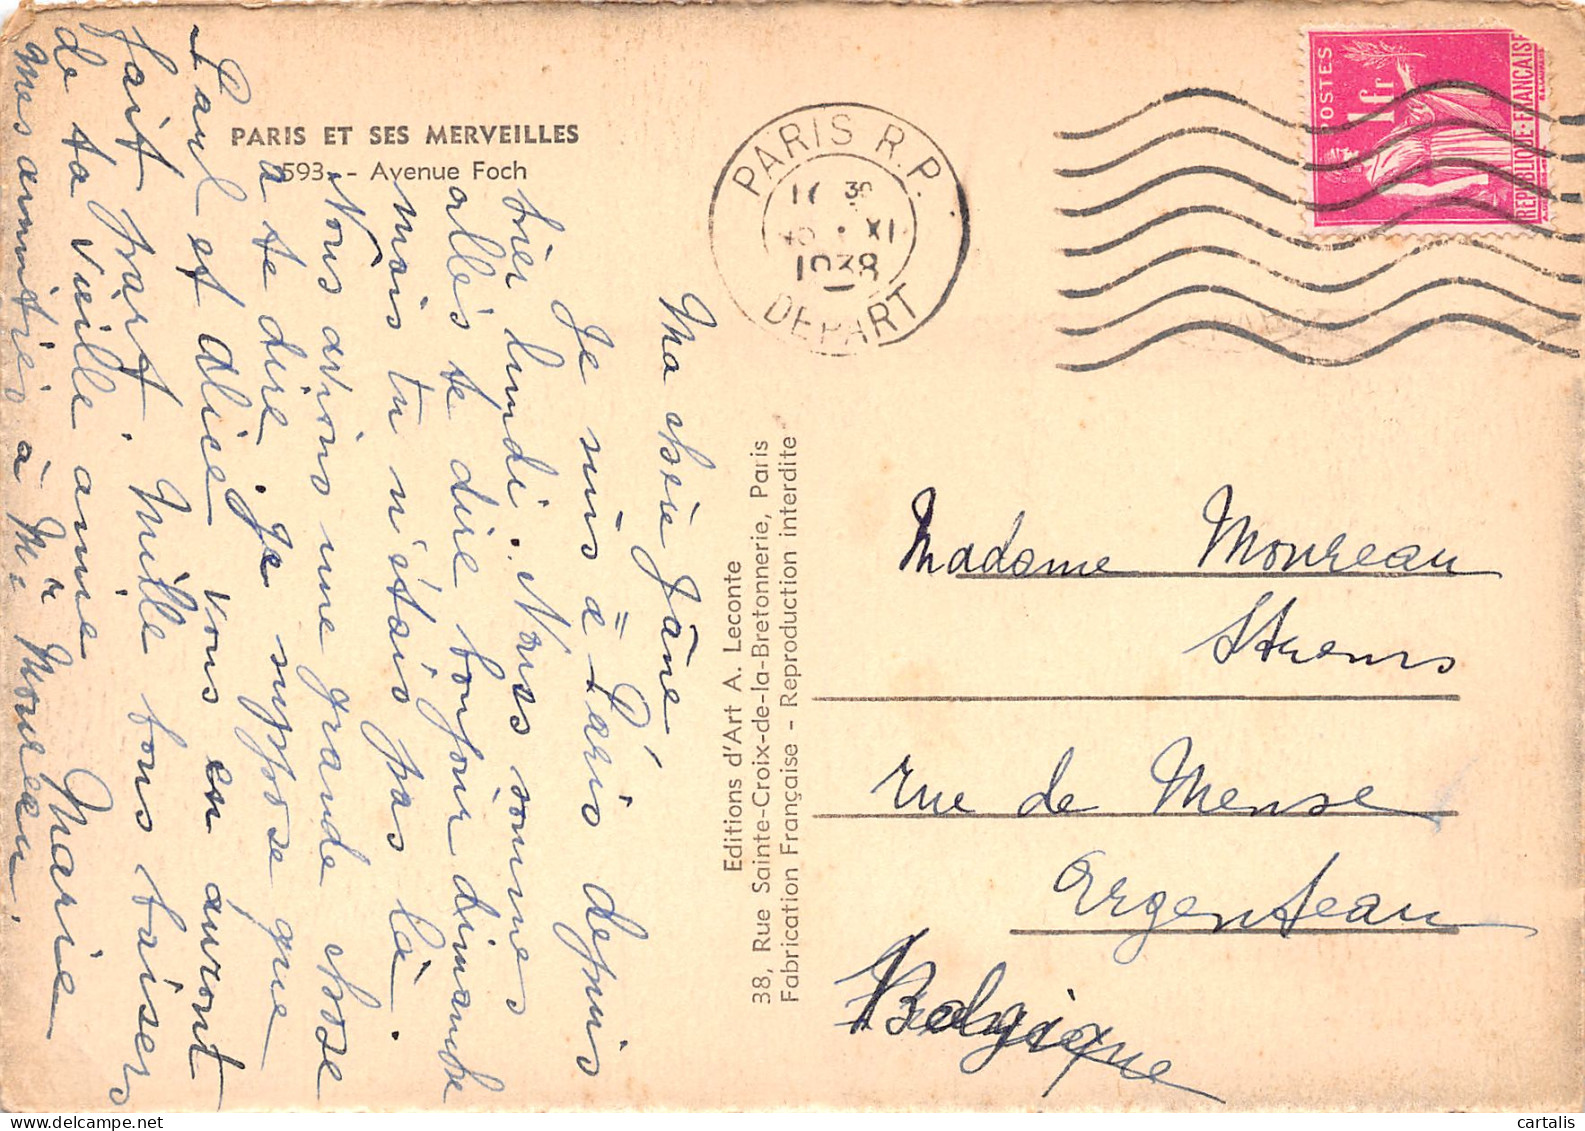 PARIS ET SES MERVEILLES
593. - Avenue Foch
Ma chère Jâne
Je suis à Paris depuis
hier lundi. Nous sommes
allés te dire bonjour dimanche
mais tu n'étais pas là.
Nous avions une grande chose
a te dire. Je suppose que
Paul et Alice vous en auront
fait part. Mille bons baisers
de ta vieille amie Marie
Mes amitiés à Mr Moureau.
Editions d'Art A. Leconte
38, Rue Sainte-Croix-de-la-Bretonnerie, Paris
Fabrication Française - Reproduction interdite
PARIS R.P.
17 30
XI
1938
DEPART
POSTES
1fr
REPUBLIQUE-FRANÇAISE
Madame Moureau
rue de Meuse
Argenteau
Belgique
www.delcampe.net
cartalis